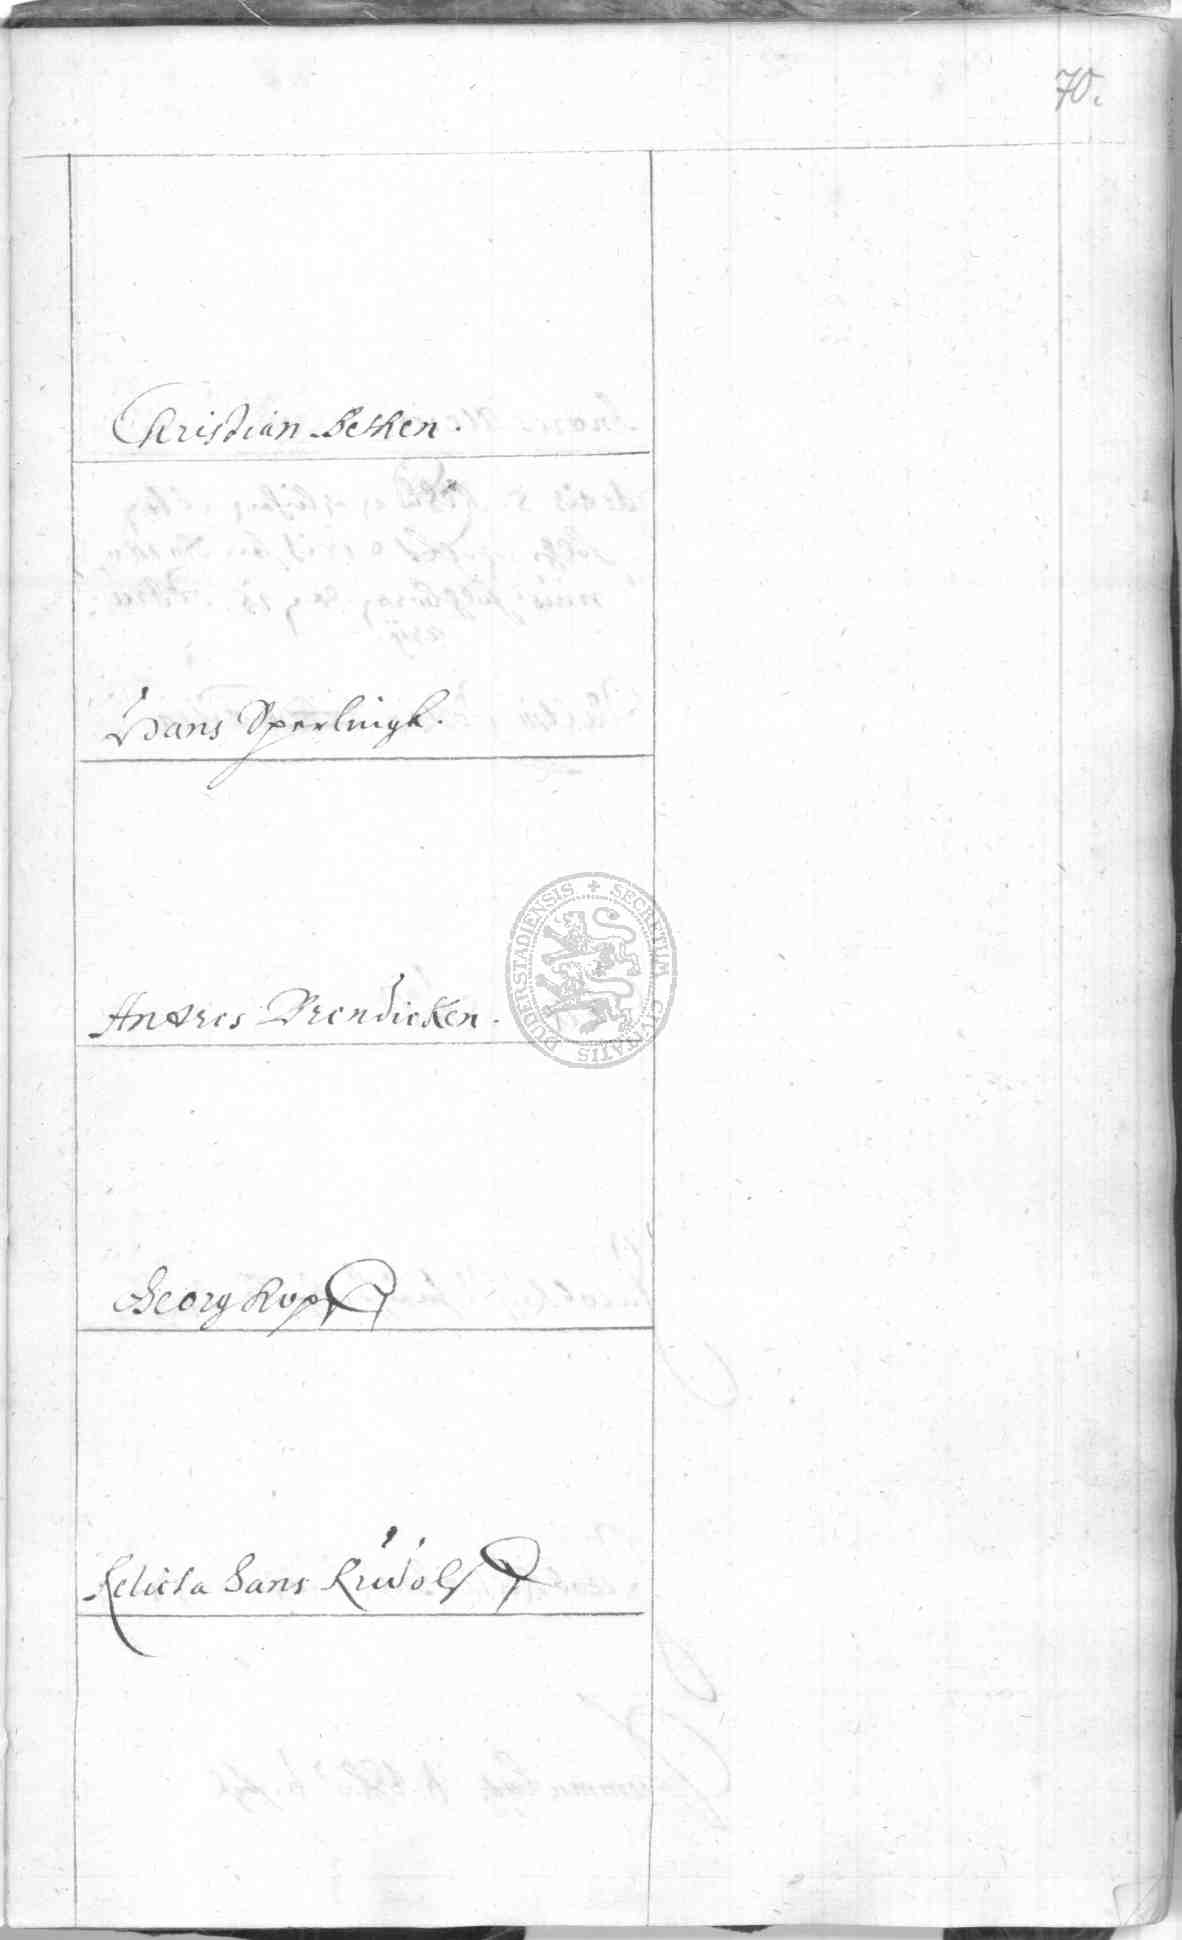 70.
Christian Betken.
Hans Sperlingk.
Andres Brendicken.
Georg Kopff
Relicta Hans Rudolff
DUDERSTADIENSIS + SECRETUM CIVITATIS